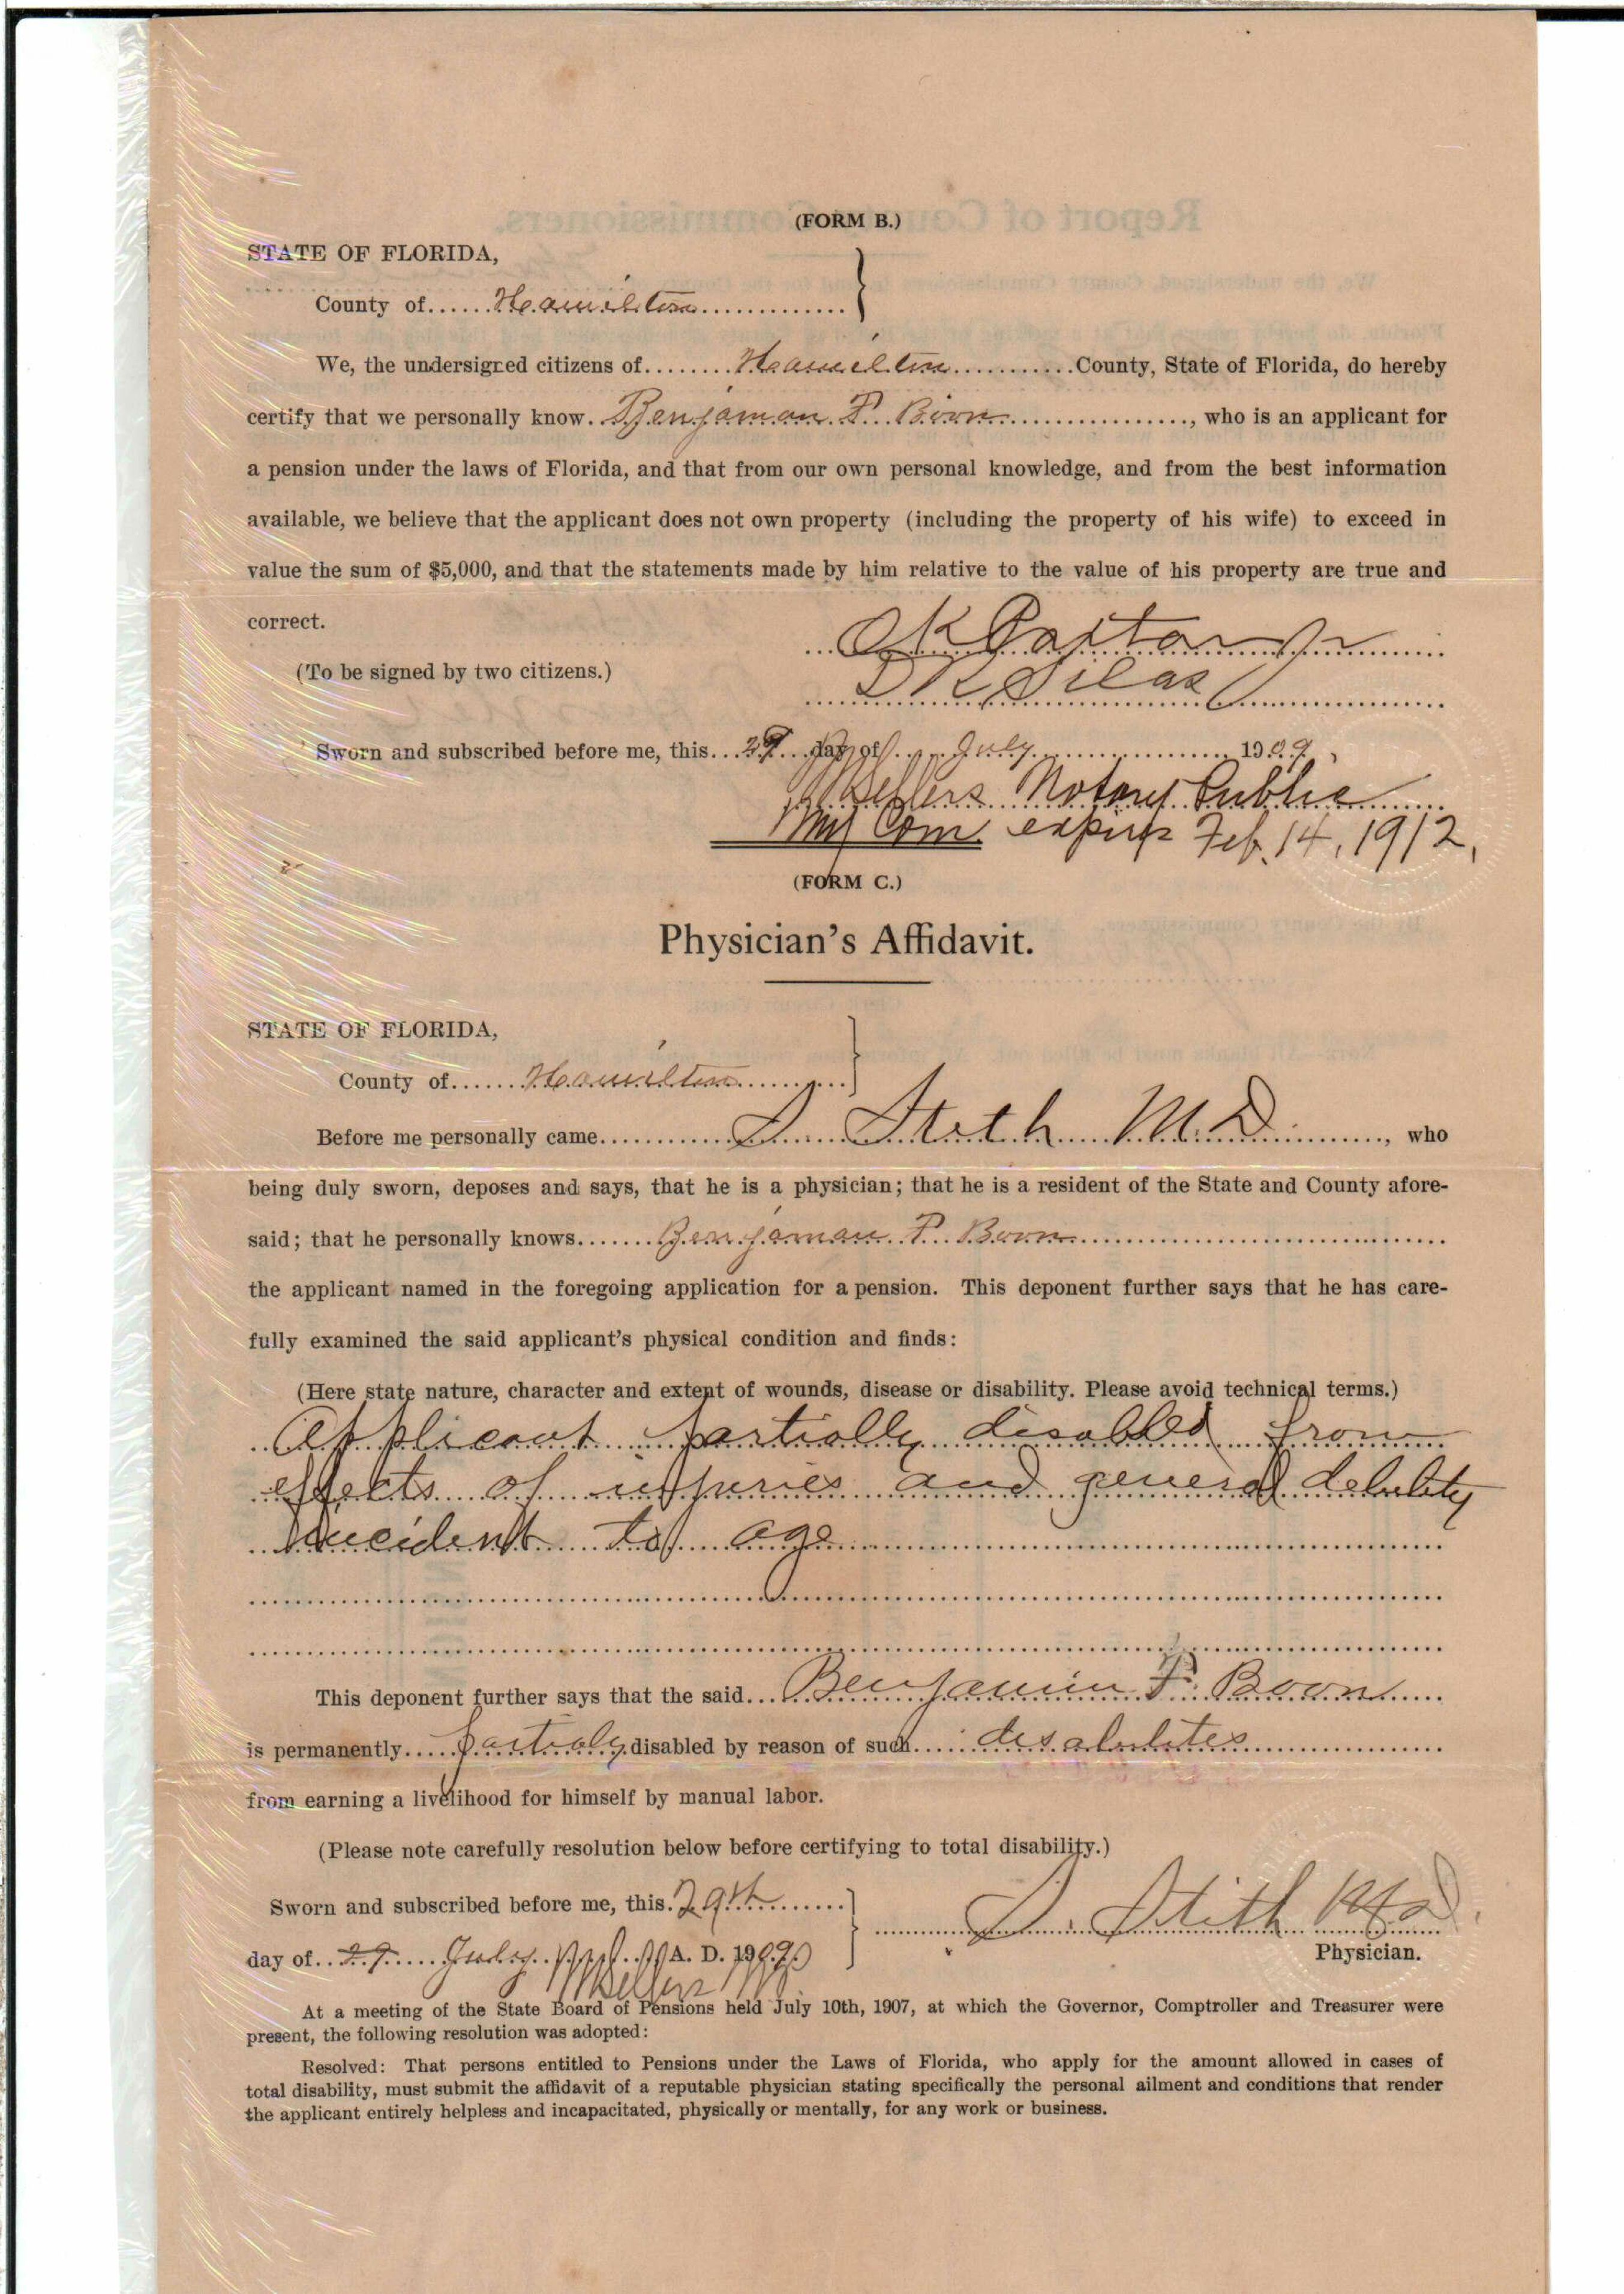 (FORM B.)
STATE OF FLORIDA,
County of......Hamilton..............
We, the undersigned citizens of........Hamilton...........County, State of Florida, do hereby
certify that we personally know. Benjaman F. Boon................, who is an applicant for
a pension under the laws of Florida, and that from our own personal knowledge, and from the best information
available, we believe that the applicant does not own property (including the property of his wife) to exceed in
value the sum of $5,000, and that the statements made by him relative to the value of his property are true and
correct.
O K Paxton Jr
(To be signed by two citizens.)
K Silas
Sworn and subscribed before me, this...29...day of....July..............1909,
Sellers Notary Public
My Com. expires Feb. 14, 1912,
(FORM C.)
Physician's Affidavit.
STATE OF FLORIDA,
County of......Hamilton...........
Before me personally came...........Stith M.D..........., who
being duly sworn, deposes and says, that he is a physician; that he is a resident of the State and County afore-
said; that he personally knows.......Benjaman F. Boon..............................
the applicant named in the foregoing application for a pension. This deponent further says that he has care-
fully examined the said applicant's physical condition and finds:
(Here state nature, character and extent of wounds, disease or disability. Please avoid technical terms.)
Applicant partially disabled from
effects of injuries and general debility
incident to age
This deponent further says that the said...Benjamin F. Boon.....
is permanently.....partialy.disabled by reason of such......disabilites....................
from earning a livelihood for himself by manual labor.
(Please note carefully resolution below before certifying to total disability.)
Sworn and subscribed before me, this.29th.........
Stith M D
day of..29....July......A. D. 1909
Physician.
Sellers
At a meeting of the State Board of Pensions held July 10th, 1907, at which the Governor, Comptroller and Treasurer were
present, the following resolution was adopted:
Resolved: That persons entitled to Pensions under the Laws of Florida, who apply for the amount allowed in cases of
total disability, must submit the affidavit of a reputable physician stating specifically the personal ailment and conditions that render
the applicant entirely helpless and incapacitated, physically or mentally, for any work or business.